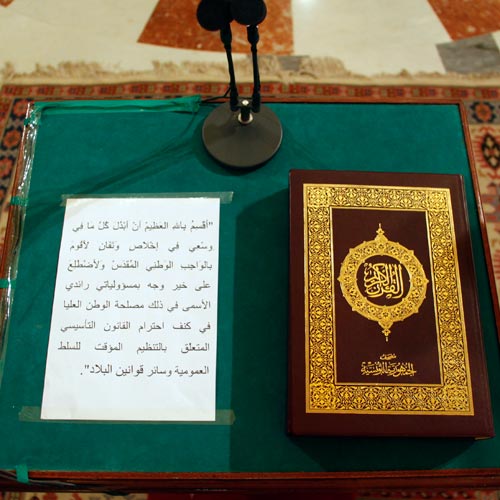 "أقسِمُ بالله العَظيمْ أنْ أبْذلَ كُلّ ما في
وسْعِي في إخْلاص وتَفَان لأقومَ
بالوَاجب الوَطنِي المُقدّسْ وَلأضْطلعَ
على خيْر وجه بمَسؤولياتي رائدي
الأسمَى في ذلك مَصلحة الوطن العليا
في كنف احترام القانون التأسيسي
المتعلق بالتنظيم المؤقت للسلط
العمومية وسائر قوانين البلاد".
القرآن الكريم
مصحف
الجمهورية التونسية